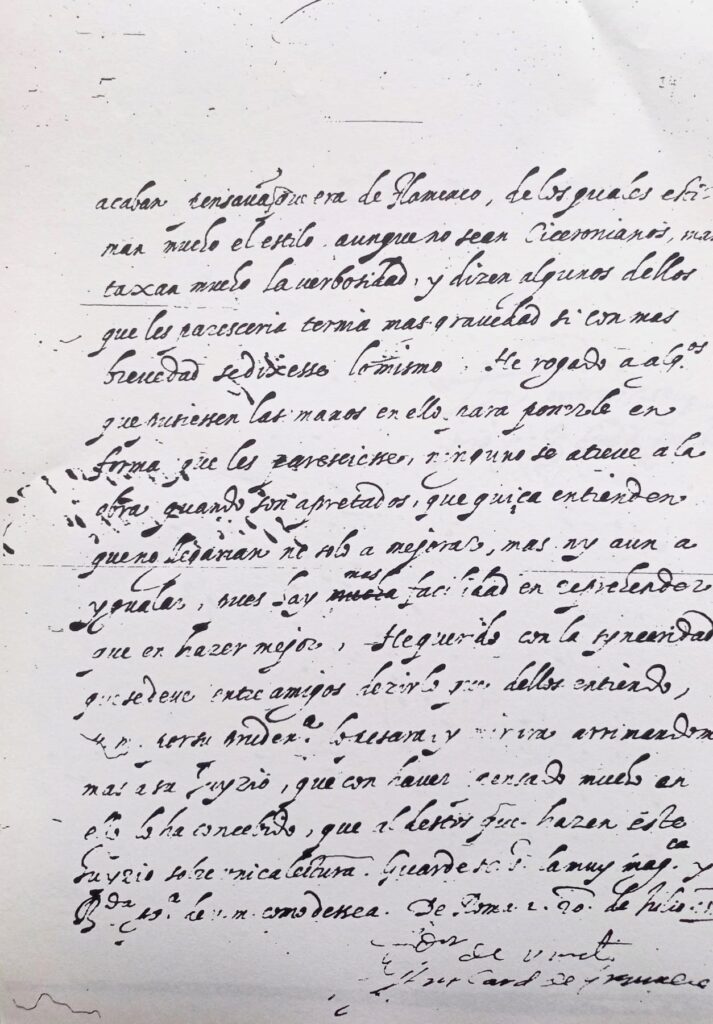 acaban pensava que era de Flamenco, de los quales esti-
man mucho el estilo aunque no sean Ciceronianos, mas
taxan mucho la verbosidad, y dizen algunos dellos
que les paresceria ternia mas gravedad si con mas
brevedad se dixesse lo mismo. He rogado a alg.os
que pusiessen las manos en ello para ponerle en
forma que les paresciesse, ninguno se atreve a la
obra quando son apretados, que quiça entienden
que no llegarian no solo a mejorar, mas ny aun a
ygualar, pues hay mas facilidad en reprehender
que en hazer mejor. He querido con la synceridad
que se deve entre amigos dezirlo que dellos entiendo,
v.m. por su pruden.a lo pesara y mirara arrimandose
mas a su juyzio, que con haver pensado mucho en
ello lo ha concebido, que al destos que hazen este
juyzio sobre unica lectura. Guarde la muy mag.ca y
R.da de v.m. como dessea. De Roma a 20 de Julio
de v.m.
Ant. Card. de Granuela